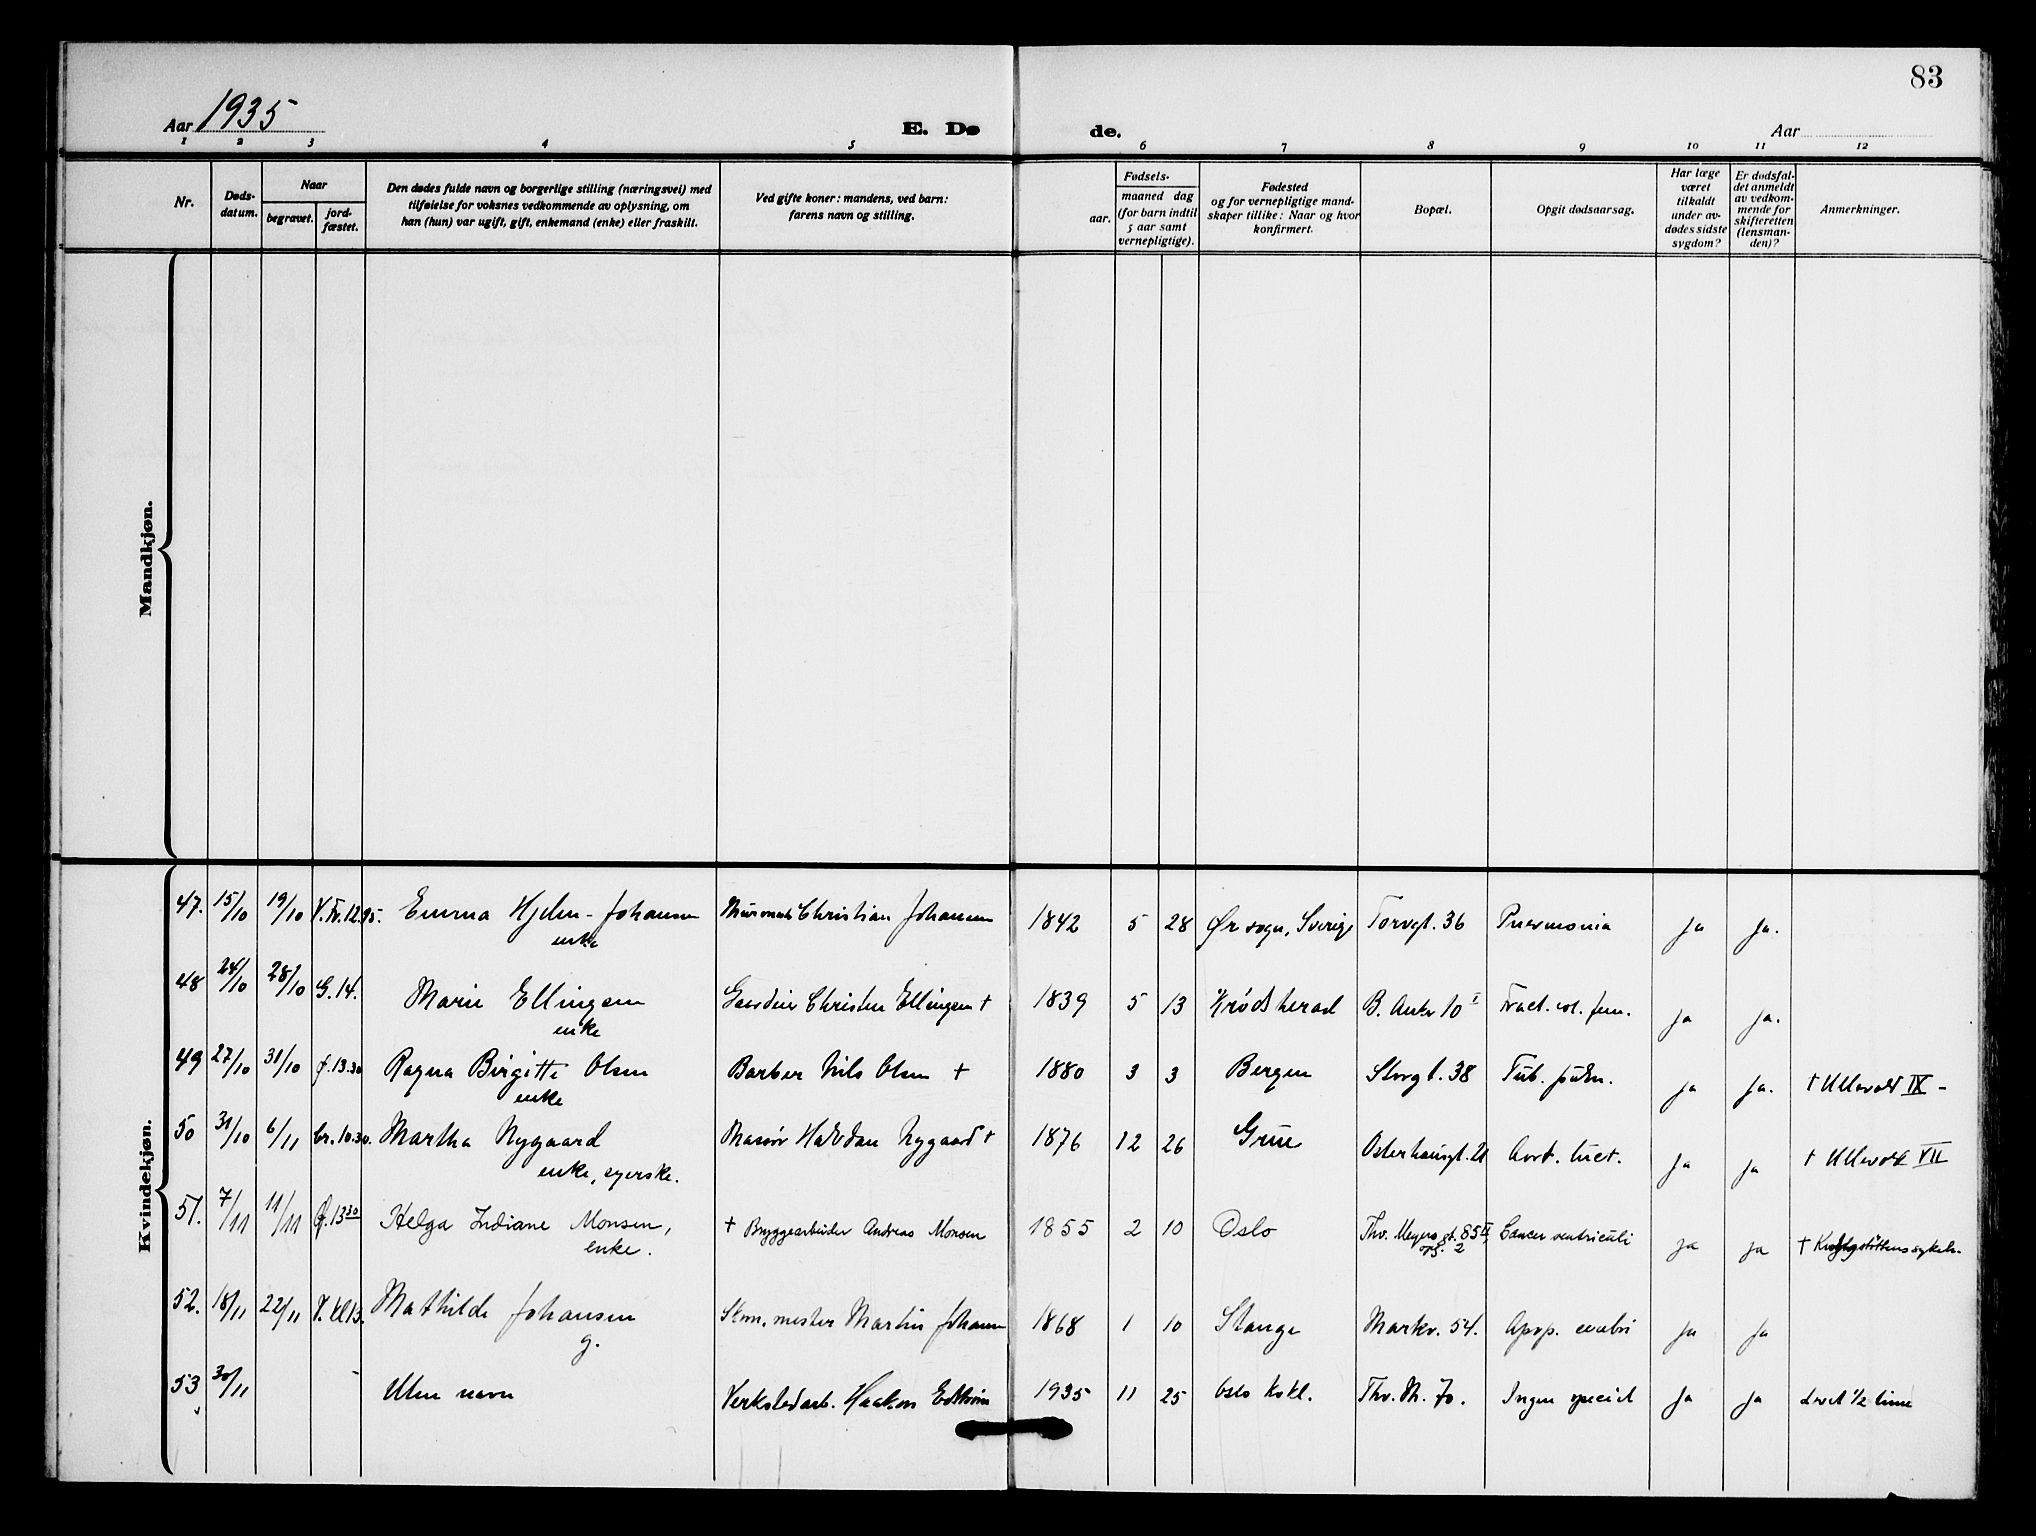 83
Aar 1935
E. Dø
de.
Aar
1 2 3 4 5 6 7 8 9 10 11 12
Nr.
Døds-
datum.
Naar
begravet.
jord-
fæstet.
Den dødes fulde navn og borgerlige stilling (næringsvei) med
tilføielse for voksnes vedkommende av oplysning, om
han (hun) var ugift, gift, enkemand (enke) eller fraskilt.
Ved gifte koner: mandens, ved barn:
farens navn og stilling.
Fødsels-
aar.
maaned dag
(for barn indtil
5 aar samt
vernepligtige).
Fødested
og for vernepligtige mand-
skaper tillike: Naar og hvor
konfirmert.
Bopæl.
Opgit dødsaarsag.
Har læge
været
tilkaldt
under av-
dødes sidste
sygdom?
Er dødsfal-
det anmeldt
av vedkom-
mende for
skifteretten
(lensman-
den)?
Anmerkninger.
Mandkjøn.
Kvindekjøn.
47. 15/10 19/10 Emma Hjelm-Johansen Christian Johansen 1842 5 28 Ør sogn, Sverige Torvgt. 36 Pneumonia ja ja.
enke
48 24/10 28/10 G. 14. Marie Ellingsen Christen Ellingsen + 1839 5 13 Krødsherad B. Ankr 10 I Fract. col. fem. ja ja.
enke
49 27/10 31/10 Ø. 13.30 Ragna Birgitte Olsen Barber Nils Olsen + 1880 3 3 Bergen Storgt. 38 Tub. pulm. ja ja. + Ullevold IX -
enke
50 31/10 6/11 br. 10.30. Martha Nygaard Massør Halvdan Nygaard + 1876 12 26 Grue Osterhausgt. 21 Aort. luet. ja ja + Ullevold VII
enke, syerske.
51. 7/11 11/11 Ø. 13 30 Helga Indiane Monsen, + Bryggearbeider Andreas Monsen 1855 2 10 Oslo Thv. Meyers gt. 85 II, Cancer ventriculi ja ja
enke. opg. 2
52. 18/11 22/11 V. kl 13. Mathilde Johansen mester Martin Johansen 1868 1 10 Stange Markv. 54. Apop. cerebri ja ja
g.
53 30/11 - Uten navn Verkstedarb. Haakon Edstrøm 1935 11 25 Oslo Kvkl. Thv. M. 70. Ingen speciel ja ja Levet 1/2 time